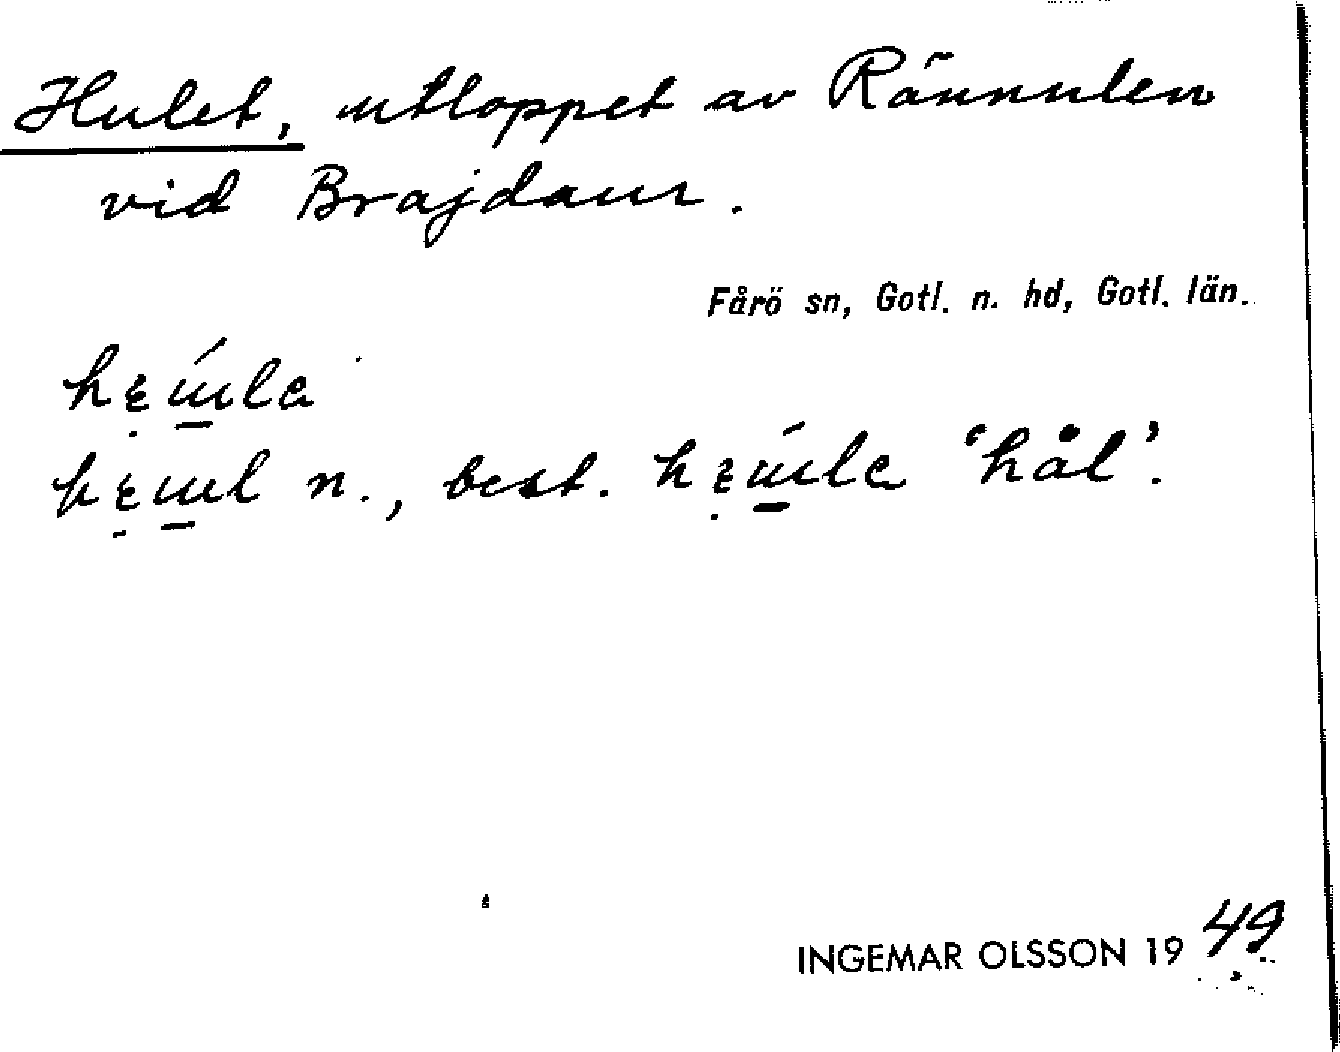 Hulet, utloppet av Rännulen
vid Brajdaur.
Fårö sn, Gotl. n. hd, Gotl. län.
n., best. 'hål'.
INGEMAR OLSSON 1949